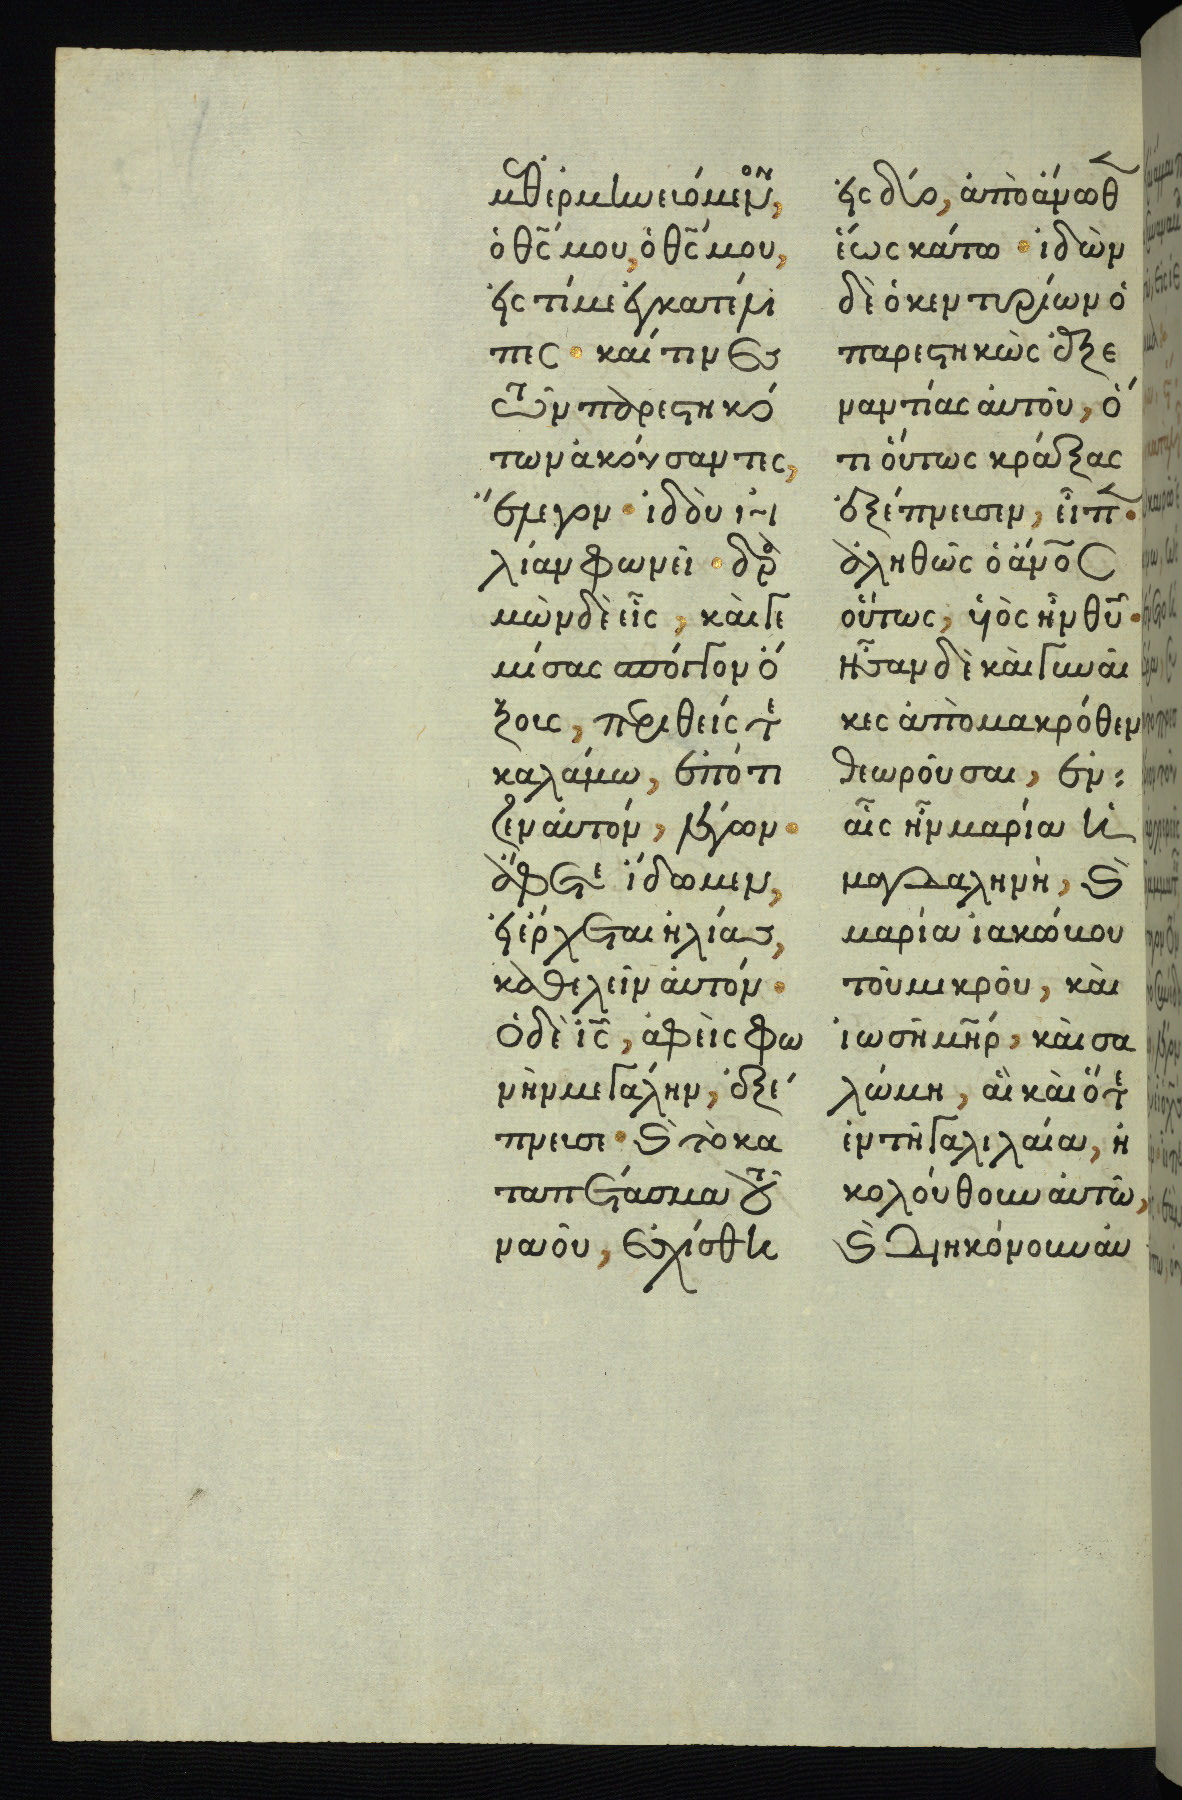 μεθερμηνευόμενον,
ὁ θς̃ μου, ὁ θς̃ μου,
εἰς τί με ἐγκατέλι
πες · καί τινες
τῶν παρεστηκό
των ἀκούσαντες,
ἔλεγον · ἰδοὺ ἠ
λίαν φωνεῖ · δρα
μὼν δὲ εἷς, καὶ γε
μίσας σπόγγον ὄ
ξους, περιθείς τε
καλάμω, ἐπότι
ζεν αὐτόν, λέγων ·
ἄφετε ἴδωμεν,
εἰ ἔρχεται ἠλίας,
καθελεῖν αὐτόν ·
Ὁ δὲ ις̃, ἀφεὶς φω
νὴν μεγάλην, ἐξέ
πνευσε · καὶ τὸ κα
ταπέτασμα τοῦ
ναοῦ, ἐσχίσθη
εἰς δύο, ἀπὸ ἄνωθεν
ἕως κάτω · ἰδὼν
δὲ ὁ κεντυρίων ὁ
παρεστηκὼς ἐξ ε
ναντίας αὐτοῦ, ὅ
τι οὕτως κράξας
ἐξέπνευσεν, εἶπεν ·
ἀληθῶς ὁ ἄνος
οὗτος, υἱὸς ἦν θυ̃ ·
Ἦσαν δὲ καὶ γυναῖ
κες ἀπὸ μακρόθεν
θεωροῦσαι, ἐν
αἷς ἦν μαρία ἡ
μαγδαληνὴ, καὶ
μαρία ἰακώβου
τοῦ μικροῦ, καὶ
ἰωσῆ μη̃ρ, καὶ σα
λώμη, αἳ καὶ ὅτε
ἐν τῆ γαλιλαία, ἠ
κολούθουν αὐτῶ,
καὶ διηκόνουν αὐ